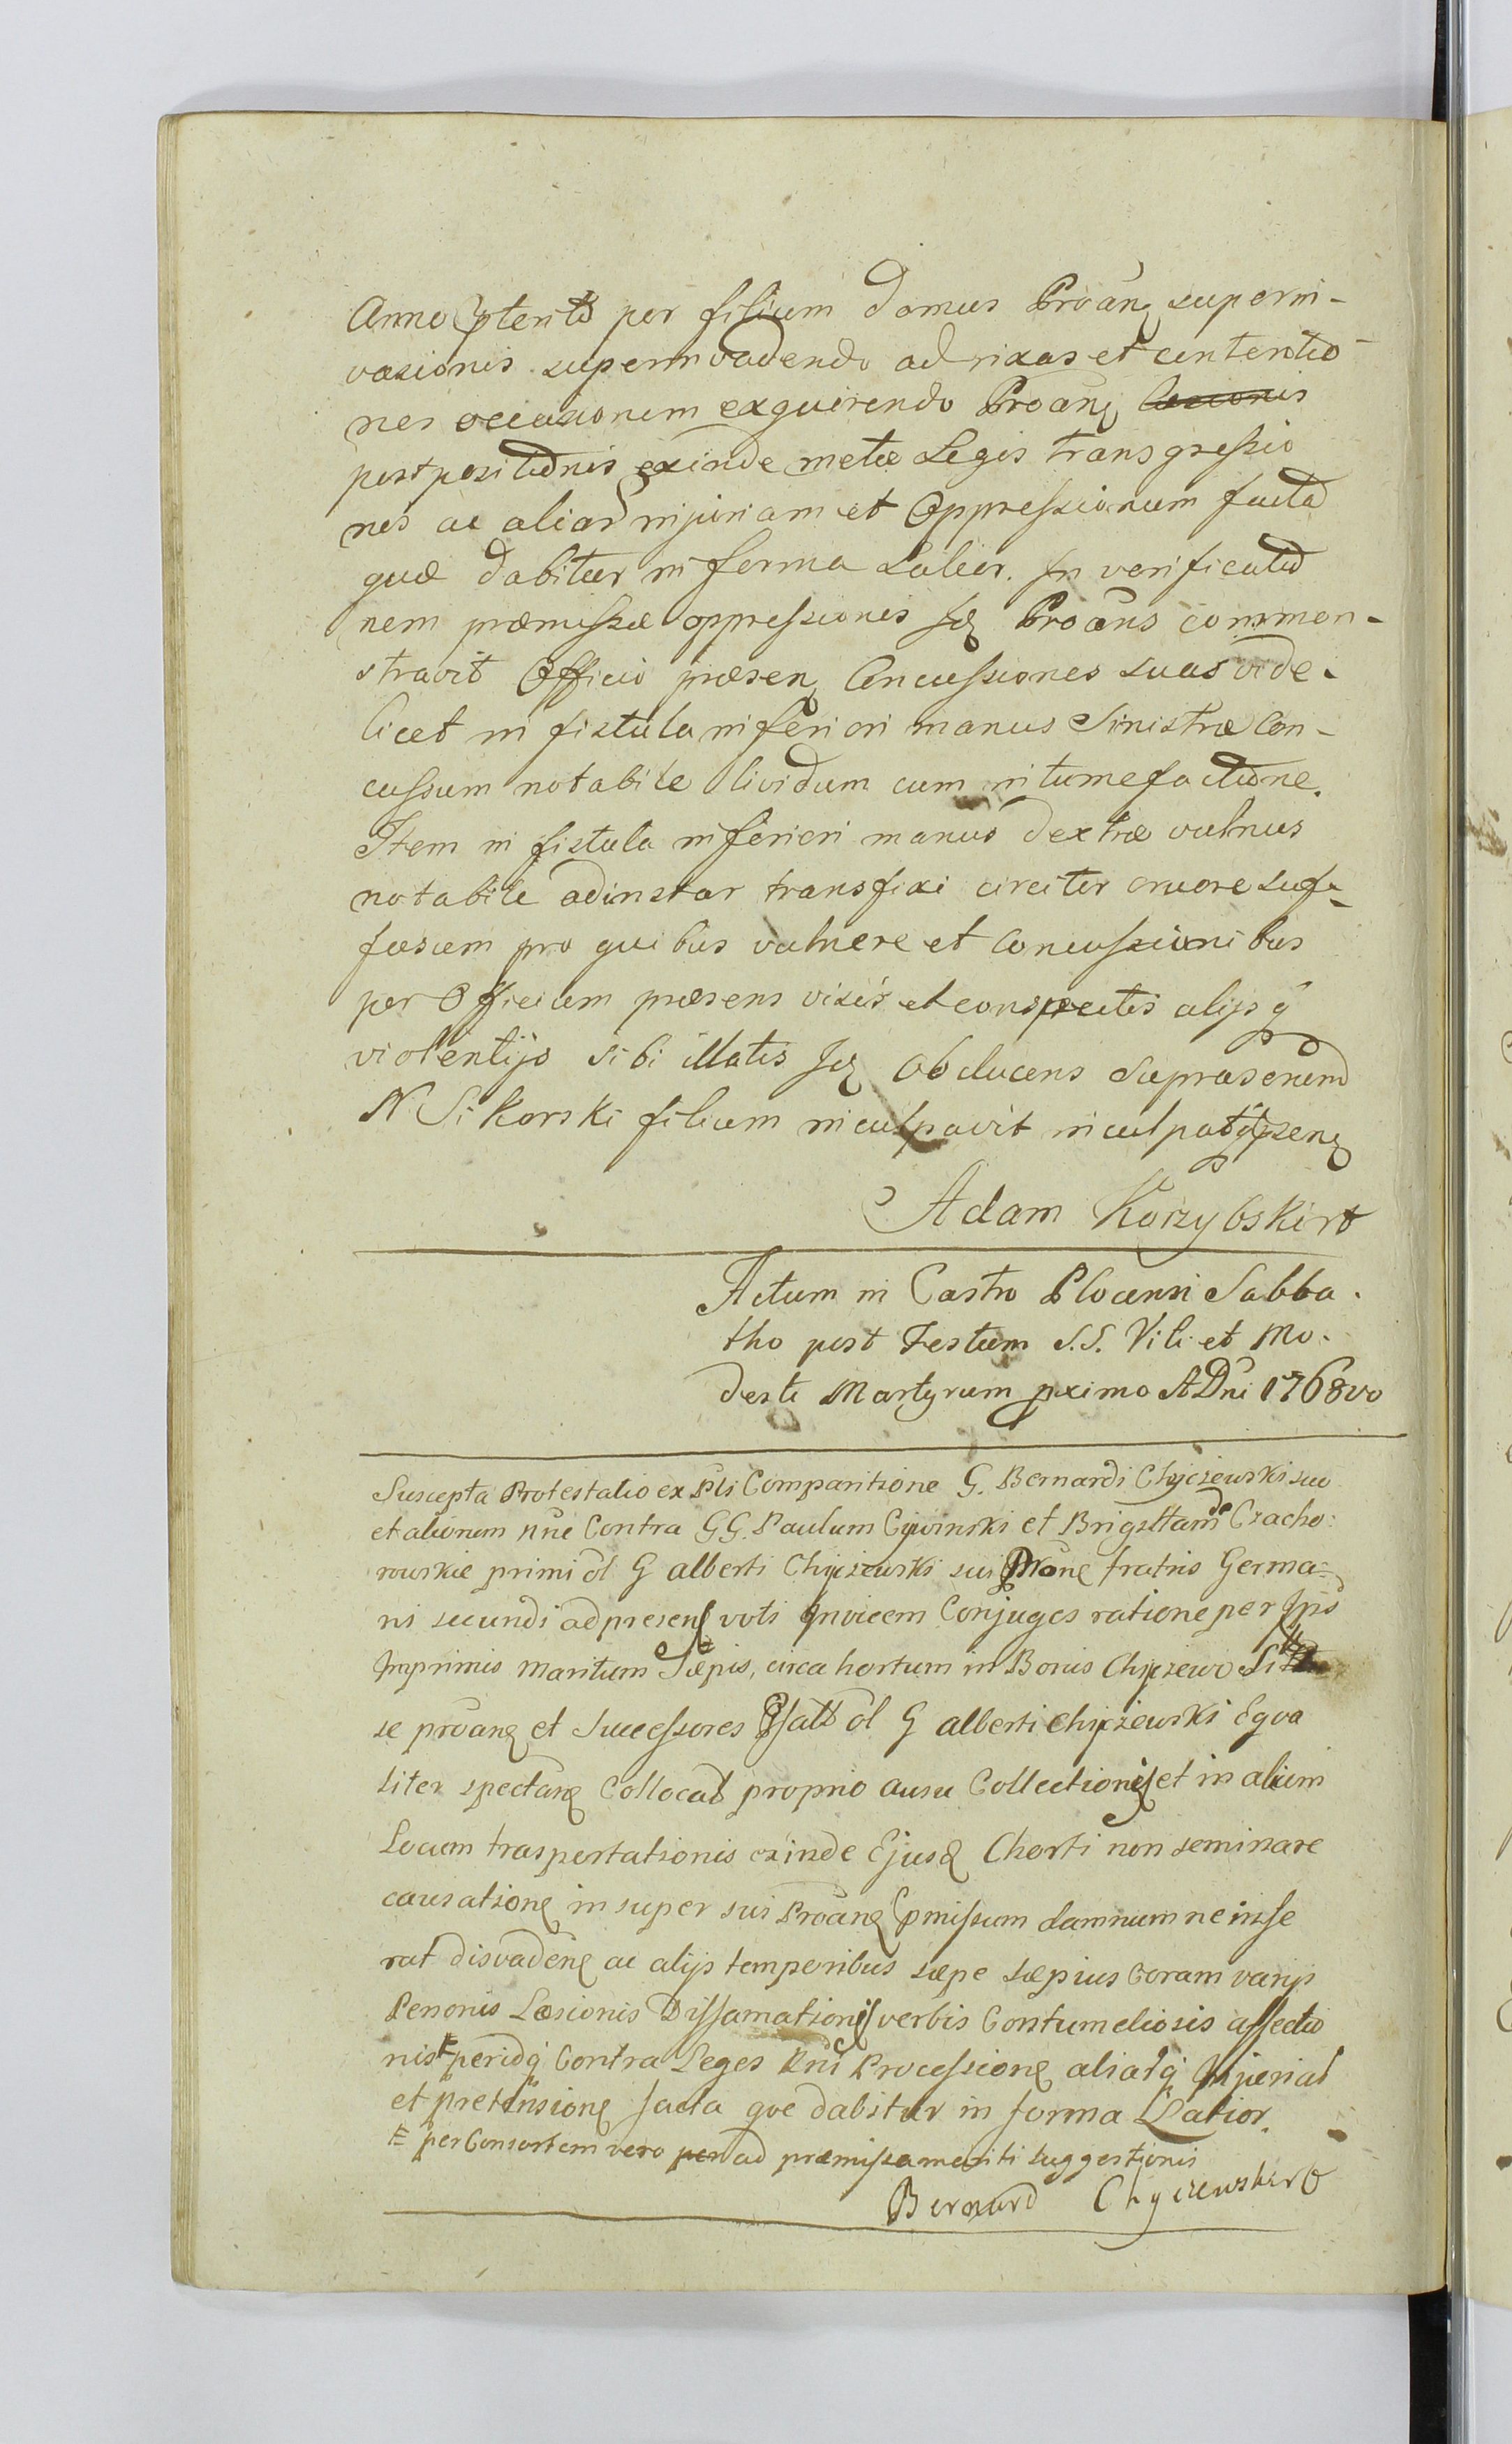 Anno pterito per filium domus Proanȩ superin-
vasionis superinvadendo ad rixas et contentio-
nes occasionem exquirendo Proanȩ Laesionis
postpositionis exinde metae Legis transgressio
nes ac aliar injuriam et Oppressionum facta
quae dabitur in forma Latior. In verificatio
nem praemissae oppressionis Idȩ Proans common-
stravit Officio praesenȩ Concussiones suas vide-
licet in fistula inferiori manus Sinistrae Con-
cussum notabile lividum cum intumefactione.
Item in fistula inferiori manus dextrae vulnus
notabile adinstar transfixi circiter cruore suf-
fusum pro quibus vulnere et concussionibus
per Officium praesens visis et conspectis alijsq
violentijs sibi illatis Idȩ Obducens suprascriptum
N Sikorski filium inculpavit inculpatq psenȩ
Adam Korzybski rt
Actum in Castro Plocensi Sabba-
tho post Festum S.S. Viti et Mo-
desti Martyrum pximo A Dni 1768vo
Suscepta Protestatio ex Pli Comparitione G. Bernardi Chyczewski suo
et aliorum nne Contra GG. Paulum Cywinski et Brigittam de Czacho:
rowskie primi ol G alberti Chyczewski sui Proanȩ fratris Germa-
ni secundi ad presens voti Invicem Conjuges ratione per Ips
Imprimis maritum Saepis, circa hortum in Bonis Chyczewo Sitt
se proanȩ et Successores Psalt ol G alberti Chyczewski Eqva
liter spectanȩ Collocat proprio ausu Collectionis et in alium
Locum trasportationis exinde Ejusd Chorti non seminare
causationȩ in super sui Proanȩ pmissum damnum ne infe
rat disvadenȩ ac alijs temporibus saepe saepius Coram varijs
Personis Laesionis Diffamationis verbis Contumeliosis affectio
nis peridq Contra Leges Rni Processionȩ aliarq Injuriar
et pretensionȩ facta qve dabitur in forma Latior.
per Consortem vero per ad praemissa meriti suggestionis
Bernard Chyczewski rt